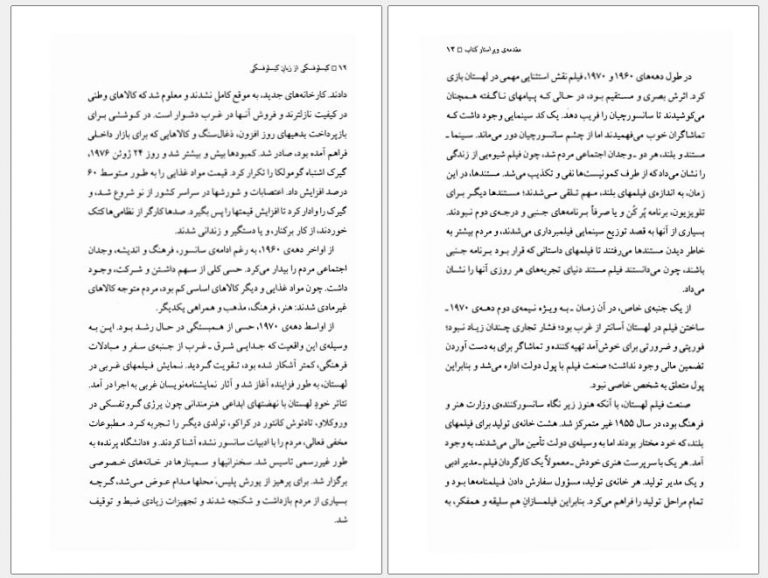 ۱۲ □ کیسلوفسکی از زبان کیسلوفسکی
دادند. کارخانه‌های جدید، به موقع کامل نشدند و معلوم شد که کالاهای وطنی
در کیفیت نازلترند و فروش آنها در غرب دشوار است. در کوششی برای
بازپرداخت بدهیهای روز افزون، ذغال‌سنگ و کالاهایی که برای بازار داخلی
فراهم آمده بود، صادر شد. کمبودها بیش و بیشتر شد و روز ۲۴ ژوئن ۱۹۷۶،
گیرک اشتباه گومولکا را تکرار کرد. قیمت مواد غذایی را به طور متوسط ۶۰
درصد افزایش داد. اعتصابات و شورشها در سراسر کشور از نو شروع شد، و
گیرک را وادار کرد تا افزایش قیمتها را پس بگیرد. صدها کارگر از نظامی‌ها کتک
خوردند، از کار برکنار، و یا دستگیر و زندانی شدند.
از اواخر دهه‌ی ۱۹۶۰، به رغم ادامه‌ی سانسور، فرهنگ و اندیشه، وجدان
اجتماعی مردم را بیدار می‌کرد. حسی کلی از سهم داشتن و شرکت، وجود
داشت. چون مواد غذایی و دیگر کالاهای اساسی کم بود، مردم متوجه کالاهای
غیرمادی شدند: هنر، فرهنگ، مذهب و همراهی یکدیگر.
از اواسط دهه‌ی ۱۹۷۰، حسی از همبستگی در حال رشد بود. این به
وسیله‌ی این واقعیت که جدایی شرق ـ غرب از جنبه‌ی سفر و مبادلات
فرهنگی، کمتر آشکار شده بود، تقویت گردید. نمایش فیلمهای غربی در
لهستان، به طور فزاینده آغاز شد و آثار نمایشنامه‌نویسان غربی به اجرا در آمد.
تئاتر خود لهستان با نهضتهای ابداعی هنرمندانی چون یرژی گروتفسکی در
وروکلاو، تادئوش کانتور در کراکو، تولدی دیگر را تجربه کرد. مطبوعات
مخفی فعالی، مردم را با ادبیات سانسور نشده آشنا کردند و «دانشگاه پرنده» به
طور غیررسمی تاسیس شد. سخنرانیها و سمینارها در خانه‌های خصوصی
برگزار شد. برای پرهیز از یورش پلیس، محلها مدام عوض می‌شد، گرچه
بسیاری از مردم بازداشت و شکنجه شدند و تجهیزات زیادی ضبط و توقیف
شد.
مقدمه‌ی ویراستار کتاب □ ۱۳
در طول دهه‌های ۱۹۶۰ و ۱۹۷۰، فیلم نقش استثنایی مهمی در لهستان بازی
کرد. اثرش بصری و مستقیم بود، در حالی که پیامهای ناگفته همچنان
می‌کوشیدند تا سانسورچیان را فریب دهد. یک کد سینمایی وجود داشت که
تماشاگران خوب می‌فهمیدند اما از چشم سانسورچیان دور می‌ماند. سینما ـ
مستند و بلند، هر دو ـ وجدان اجتماعی مردم شد، چون فیلم شیوه‌یی از زندگی
را نشان می‌داد که از طرف کمونیست‌ها نفی و تکذیب می‌شد. مستندها، در این
زمان، به اندازه‌ی فیلمهای بلند، مهم تلقی می‌شدند؛ مستندها دیگر برای
تلویزیون، برنامه پُر کُن و یا صرفاً برنامه‌های جنبی و درجه‌ی دوم نبودند.
بسیاری از آنها به قصد توزیع سینمایی فیلمبرداری می‌شدند، و مردم بیشتر به
خاطر دیدن مستندها می‌رفتند تا فیلمهای داستانی که قرار بود برنامه جنبی
باشند، چون می‌دانستند فیلم مستند دنیای تجربه‌های هر روزی آنها را نشان
می‌داد.
از یک جنبه‌ی خاص، در آن زمان ـ به ویژه نیمه‌ی دوم دهه‌ی ۱۹۷۰ ـ
ساختن فیلم در لهستان آسانتر از غرب بود؛ فشار تجاری چندان زیاد نبود؛
فوریتی و ضرورتی برای خوش‌آمد تهیه کننده و تماشاگر برای به دست آوردن
تضمین مالی وجود نداشت؛ صنعت فیلم با پول دولت اداره می‌شد و بنابراین
پول متعلق به شخص خاصی نبود.
صنعت فیلم لهستان، با آنکه هنوز زیر نگاه سانسورکننده‌ی وزارت هنر و
فرهنگ بود، در سال ۱۹۵۵ غیر متمرکز شد. هشت خانه‌ی تولید برای فیلمهای
بلند، که خود مختار بودند اما به وسیله‌ی دولت تأمین مالی می‌شدند، به وجود
آمد. هر یک با سرپرست هنری خودش ـ معمولاً یک کارگردان فیلم ـ مدیر ادبی
و یک مدیر تولید. هر خانه‌ی تولید، مسؤول سفارش دادن فیلمنامه‌ها بود و
تمام مراحل تولید را فراهم می‌کرد. بنابراین فیلمسازانِ هم سلیقه و همفکر، به